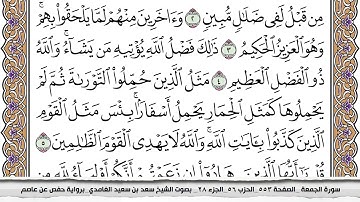 مِن قَبْلُ لَفِى ضَلَٰلٍ مُّبِينٍ ٢ وَءَاخَرِينَ مِنْهُمْ لَمَّا يَلْحَقُوا۟ بِهِمْ
وَهُوَ ٱلْعَزِيزُ ٱلْحَكِيمُ ٣ ذَٰلِكَ فَضْلُ ٱللَّهِ يُؤْتِيهِ مَن يَشَآءُ وَٱللَّهُ
ذُو ٱلْفَضْلِ ٱلْعَظِيمِ ٤ مَثَلُ ٱلَّذِينَ حُمِّلُوا۟ ٱلتَّوْرَىٰةَ ثُمَّ لَمْ
يَحْمِلُوهَا كَمَثَلِ ٱلْحِمَارِ يَحْمِلُ أَسْفَارًۢا بِئْسَ مَثَلُ ٱلْقَوْمِ
ٱلَّذِينَ كَذَّبُوا۟ بِـَٔايَٰتِ ٱللَّهِ وَٱللَّهُ لَا يَهْدِى ٱلْقَوْمَ ٱلظَّٰلِمِينَ ٥
قُلْ يَٰٓأَيُّهَا ٱلَّذِينَ هَادُوٓا۟ إِن زَعَمْتُمْ أَنَّكُمْ أَوْلِيَآءُ لِلَّهِ مِن
سورة الجمعة _الصفحة ٥٥٣_الحزب ٥٦_الجزء ٢٨_ بصوت الشيخ سعد بن سعيد الغامدي_برواية حفص عن عاصم